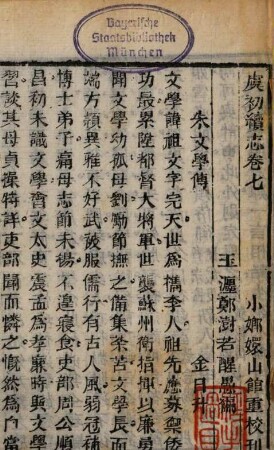 Bayerische
Staatsbibliothek
München
虞初續志卷七
小嫏嬛山館重校刊
鄭澍若醒愚編
朱文學傳 金日升
文學謙祖文字完天世爲檇李人祖先應募禦倭
功最累陞都督大將軍世襲蘇州衛
聞文學幼孤母劉勤節撫之備集荼苦文學長而
端方頎異雅不好武服儒行有古人風弱冠補
博士弟子痛母志節未揚不遑寢食吏部周公順
昌初未識文學文太史震孟爲孝廉時與文學
習談其母貞操特詳吏部聞而憐之慨然爲白當